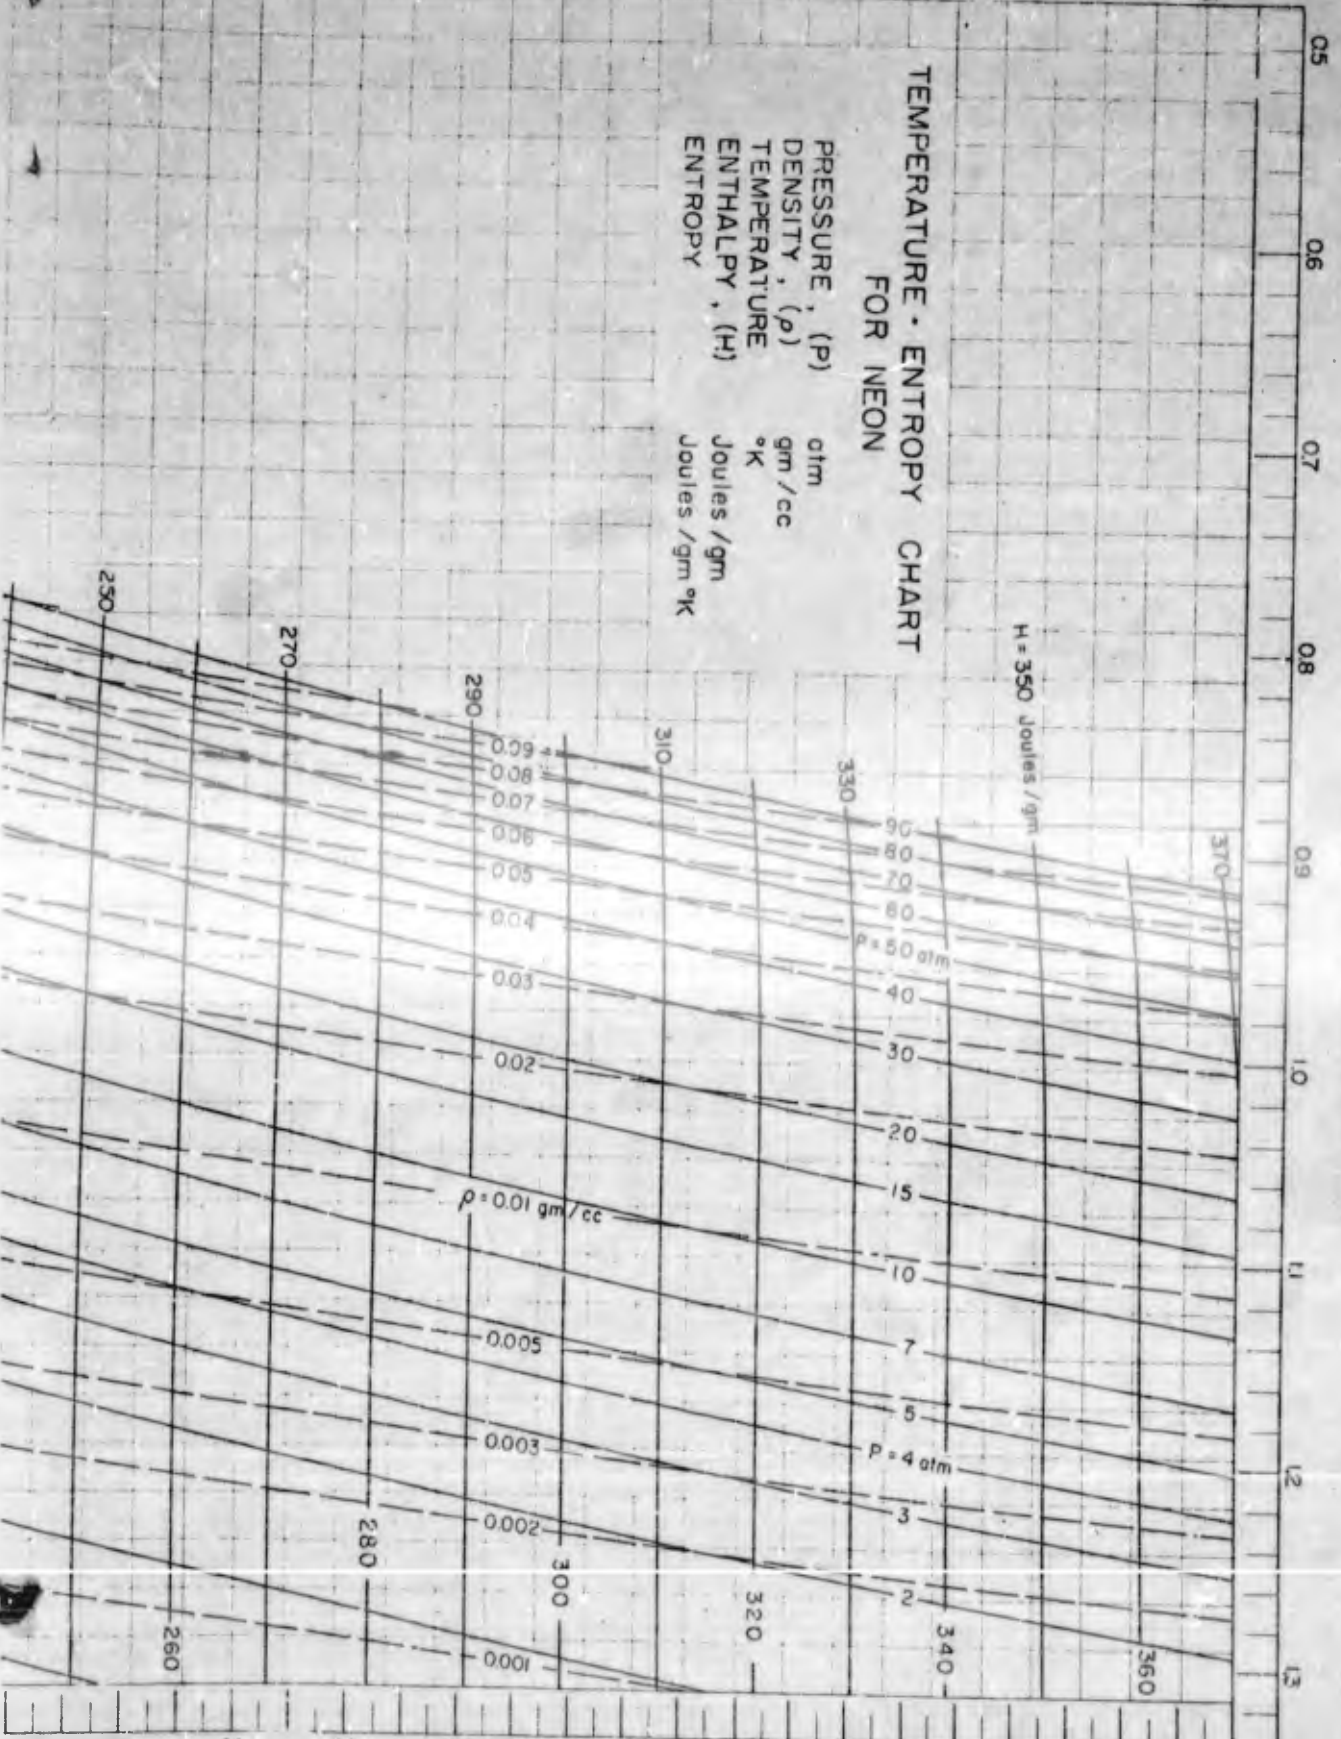 TEMPERATURE - ENTROPY CHART
FOR NEON
PRESSURE, (P) atm
DENSITY, (ρ) gm/cc
TEMPERATURE °K
ENTHALPY, (H) Joules/gm
ENTROPY Joules/gm °K
0.5
0.6
0.7
0.8
0.9
1.0
1.1
1.2
1.3
H = 350 Joules/gm
370
330
310
290
270
250
90
80
70
60
P = 50 atm
40
30
20
15
10
7
5
P = 4 atm
3
2
0.09
0.08
0.07
0.06
0.05
0.04
0.03
0.02
ρ = 0.01 gm/cc
0.005
0.003
0.002
0.001
360
340
320
300
280
260